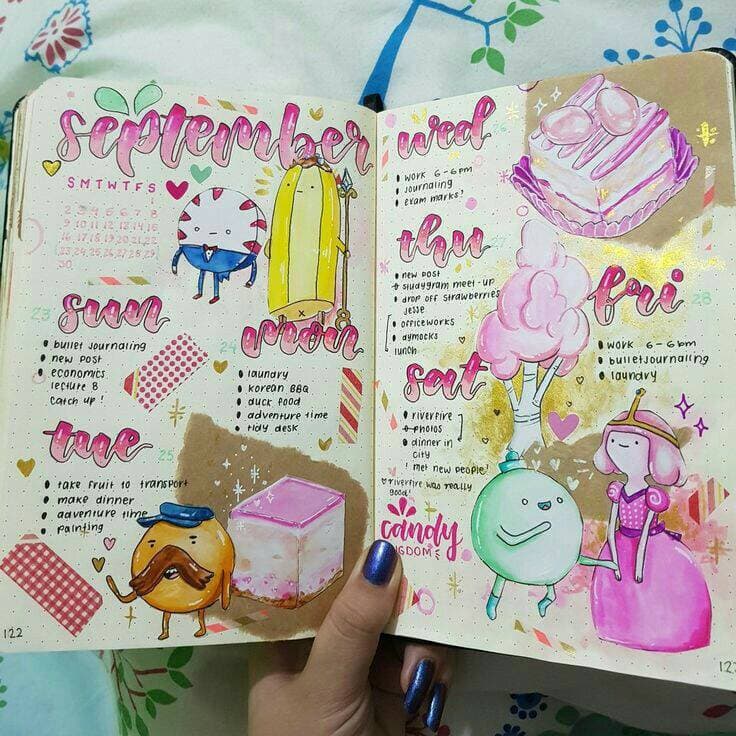 september
S M T W T F S
2 3 4 5 6 7 8
9 10 11 12 13 14 15
16 17 18 19 20 21 22
23 24 25 26 27 28 29
30
23
sun
• bullet journaling
• new post
• economics
lecture 8
catch up!
24
mon
• laundry
• korean BBQ
• duck food
• adventure time
• tidy desk
tue
25
• take fruit to transport
• make dinner
• adventure time
• painting
122
wed
26
• work 6-6pm
• journaling
• exam marks!
thu
27
• new post
→ studygram meet-up
• drop off strawberries
jesse
• officeworks
• dymocks
lunch
fri
28
• work 6-6pm
• bullet journaling
• laundry
sat
• riverfire
→ photos
• dinner in
city
! met new people!
riverfire was really
good!
candy